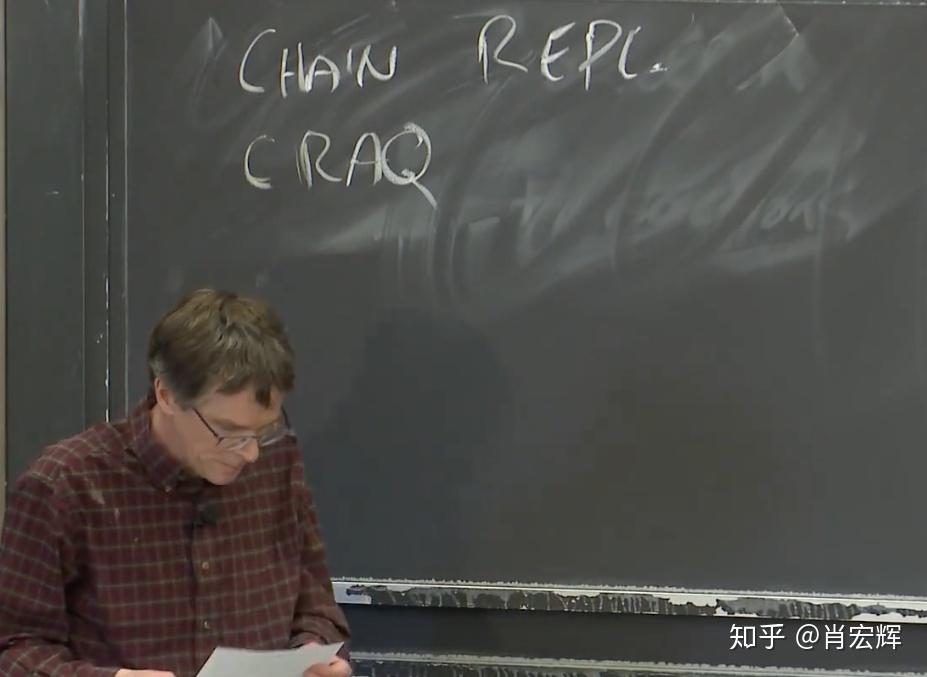 CHAIN REPL.
CRAQ
知乎 @肖宏辉